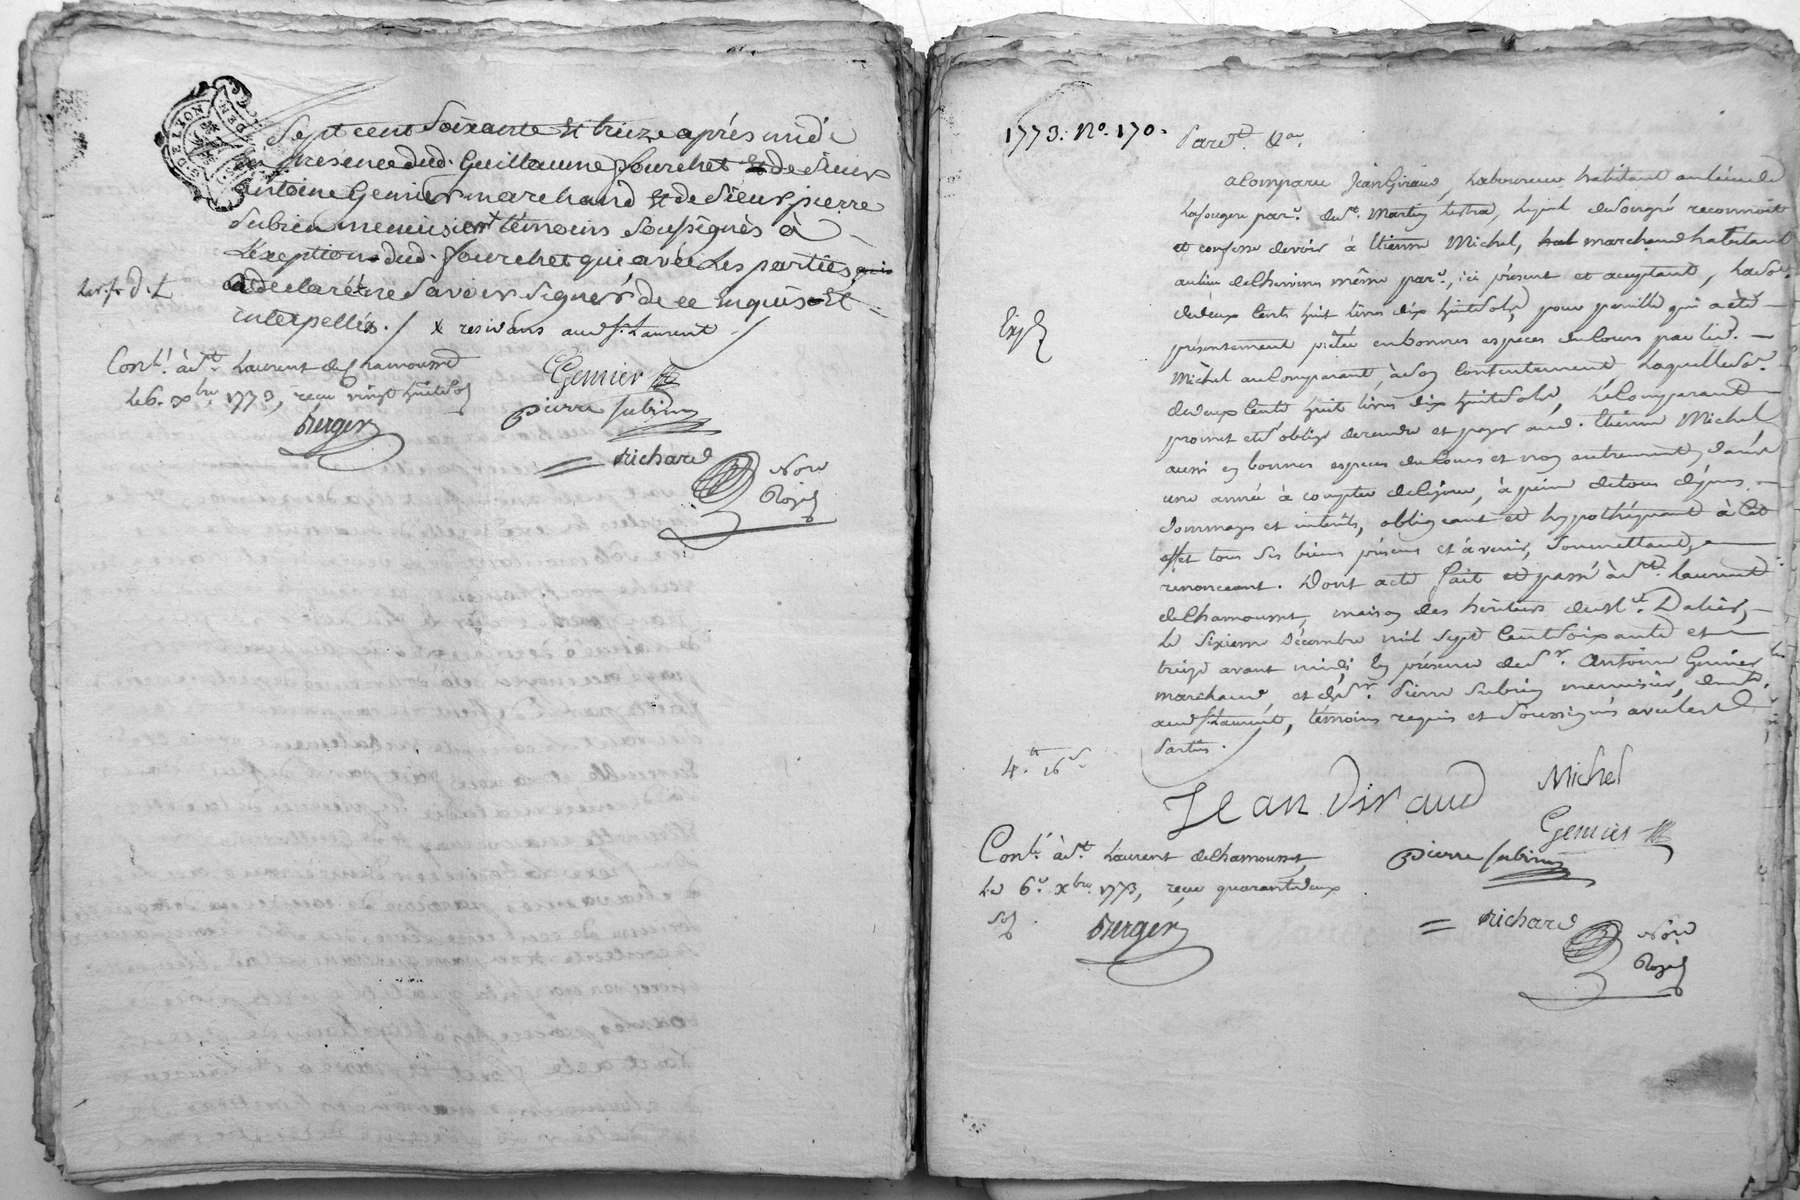 DE LYON
DEN
Sept cent soixante et treize après midi
en presence dud. Guillaume fourchet et de sieur
antoine Genier marchand et de sieur pierre
Subrin menuisier x témoins soussignés à
L'exception dud. fourchet qui avec Les parties
a declaré ne savoir signer de ce Enquis Et
interpellés. / x residans aud. St. Laurent /
Cont. à St. Laurent de Chamousset
Le 6. xbre 1773, reçu vingt huit sols
Berger
Genier
pierre subrin
Richard
Nore
Royal
1773. No. 170.
Pard.t
a Comparu Jean Giraud, Laboureur habitant au lieu de
Lafougere par. de St. Martin Lestra, Lequel de son gré reconnoit
et confesse devoir à Etienne Michel, marchand habitant
au lieu de même par., ici présent et acceptant, La so.
de deux Cents huit livres dix huit sols, pour pareille qui a été
présentement prêtée en bonnes especes du Cours par led.
Michel au Comparant, à son Contentement Laquelle so.
de deux Cents huit livres dix huit sols, Le Comparant
promet et s'oblige de rendre et payer aud. Etienne Michel
aussi en bonnes especes du Cours et non autrement, dans
une année à compter de ce jour, à peine de tous dépens
dommages et intérêts, obligeant et hypothéquant à Cet
effet tous ses biens présens et à venir, Soumettant,
renonceant. Dont acte fait et passé à St. Laurent
de Chamousset, maison des héritiers de Me. Dalier,
Le Sixieme Décembre mil Sept Cent Soixante et
treize avant midi, En présence de Sr. Antoine Genier
marchand, et de Sr. Pierre Subrin menuisier, dem.
aud. St. Laurent, témoins requis et Soussignés avec les
Parties.
4.tt 16 s
Jean Giraud
Michel
Genier
pierre subrin
Cont. à St. Laurent de Chamousset,
Le 6e. xbre 1773, reçu quarante deux
Sols
Berger
Richard
Nore
Royal